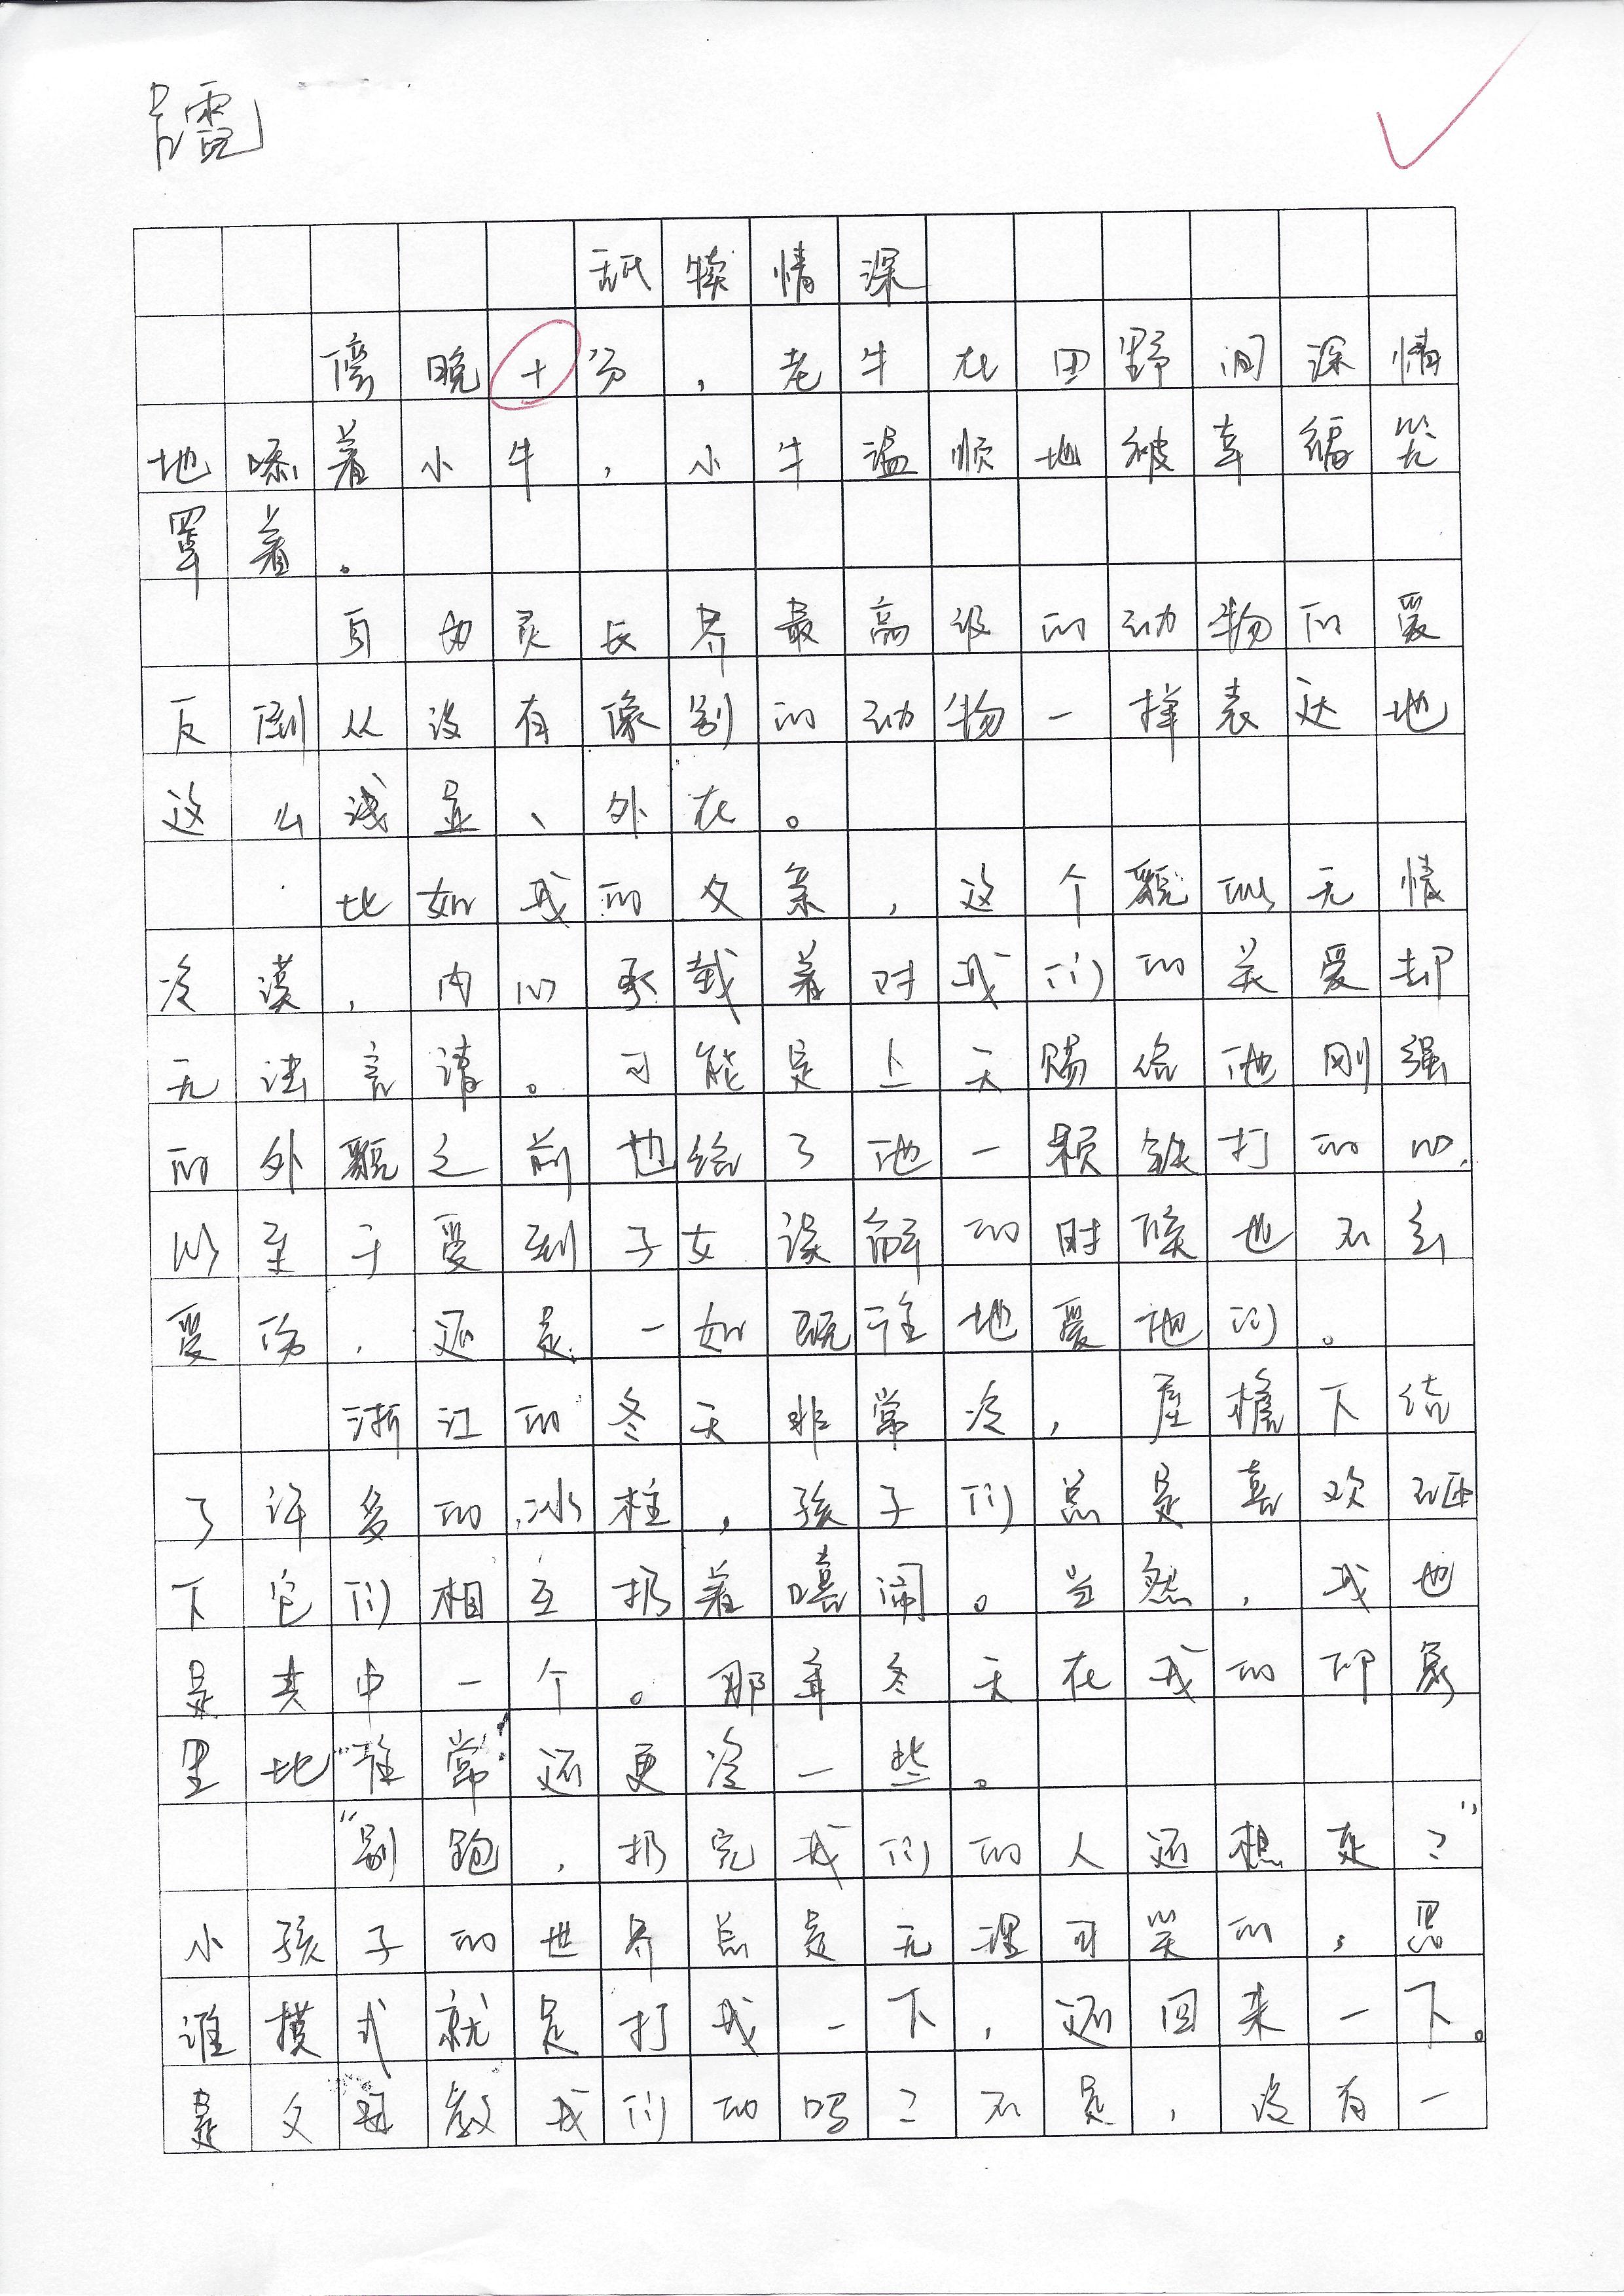 舐犊情深
傍晚十分，老牛在田野间深情
地舔着小牛，小牛温顺地被幸福笼
罩着。
身为灵长界最高级的动物的爱
反倒从没有像别的动物一样表达地
这么浅显、外在。
比如我的父亲，这个貌似无情
冷漠，内心承载着对我们的关爱却
无法言请。可能是上天赐给他刚强
的外貌之前也给了他一颗铁打的心，
以至于受到子女误解的时候也不会
受伤，还是一如既往地爱他们。
浙江的冬天非常冷，屋檐下结
了许多的冰柱，孩子们总是喜欢砸
下它们相互扔着嘻闹。当然，我也
是其中一个。那年冬天在我的印象
里比“往常”还更冷一些。
“别跑，扔完我们的人还想走？”
小孩子的世界总是无理可笑的，思
维模式就是打我一下，还回来一下。
是父母教我们的吗？不是，没有一